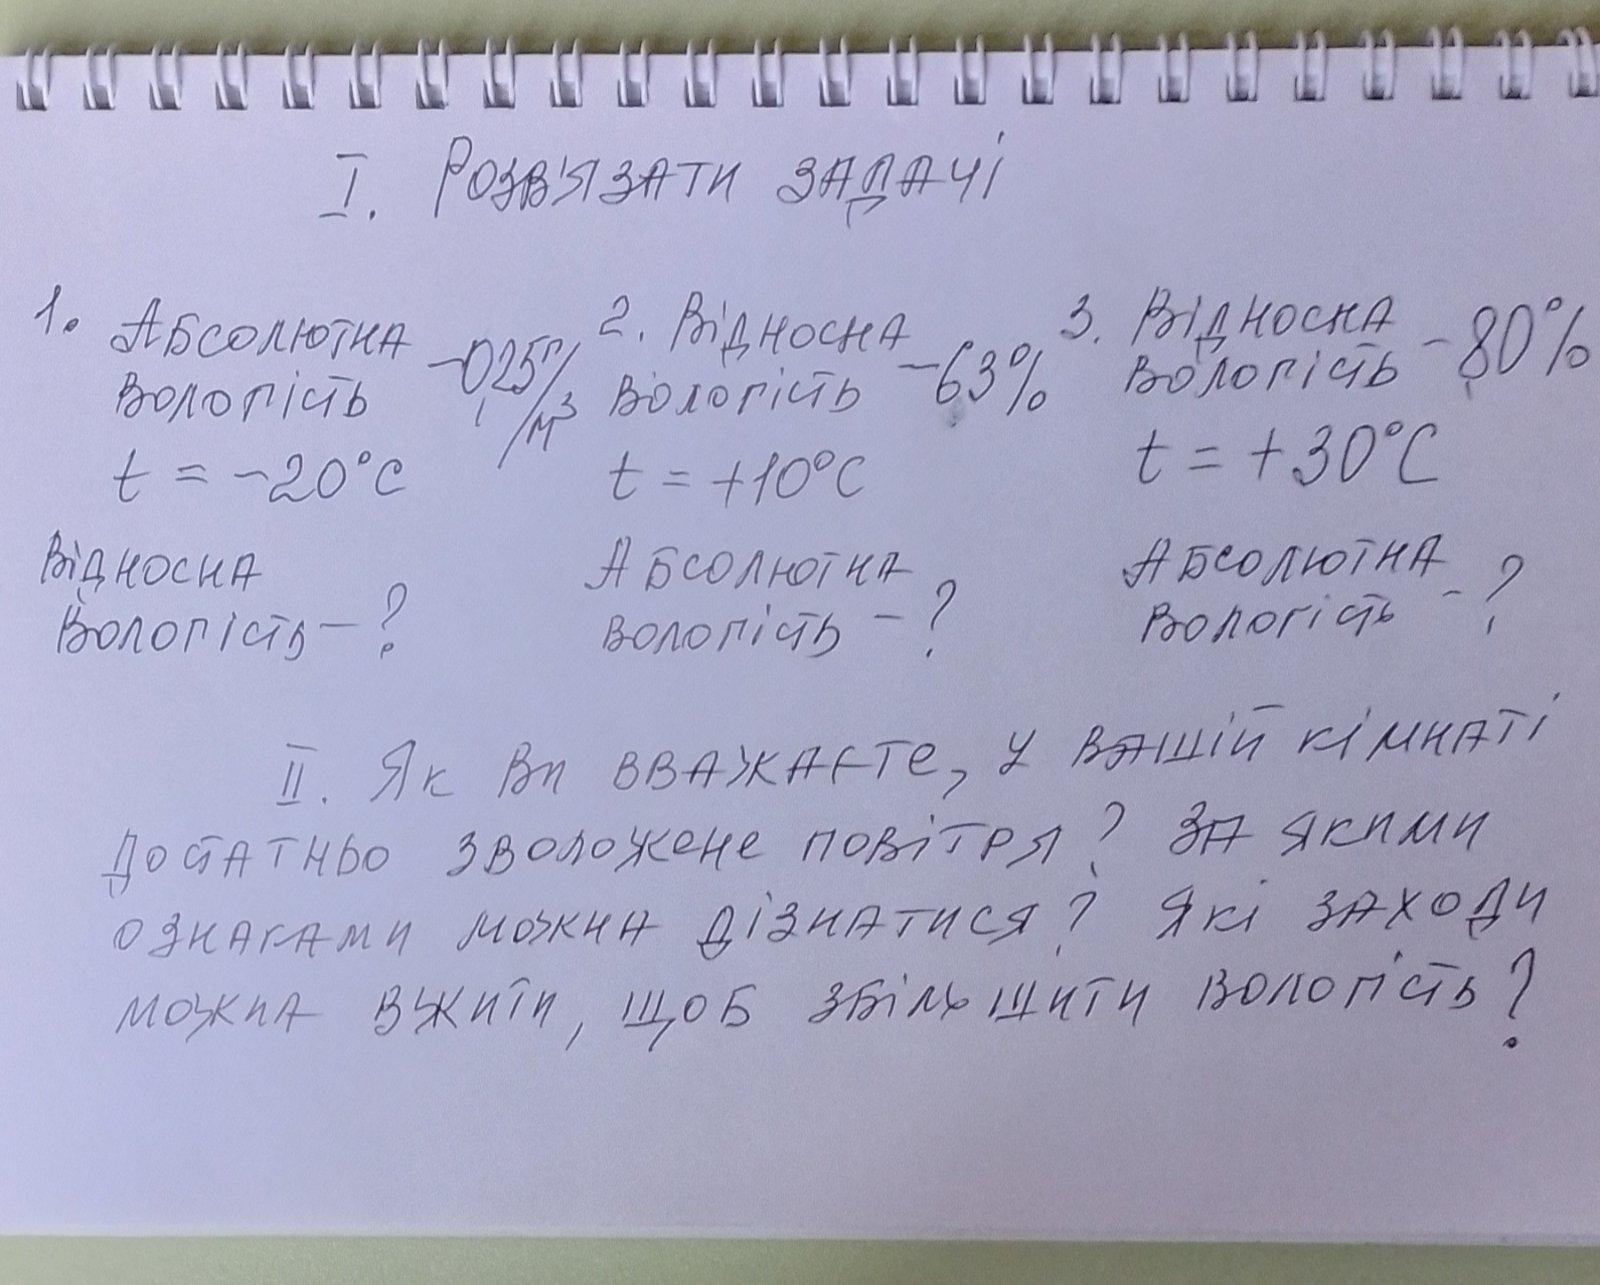 I. Розв'язати задачі
1. Абсолютна вологість – 0,25 г/м³
t = -20°C
Відносна
вологість – ?
2. Відносна вологість – 63%
t = +10°C
Абсолютна
вологість – ?
3. Відносна вологість – 80%
t = +30°C
Абсолютна
вологість – ?
II. Як Ви вважаєте, у вашій кімнаті
достатньо зволожене повітря? За якими
ознаками можна дізнатися? Які заходи
можна вжити, щоб збільшити вологість?